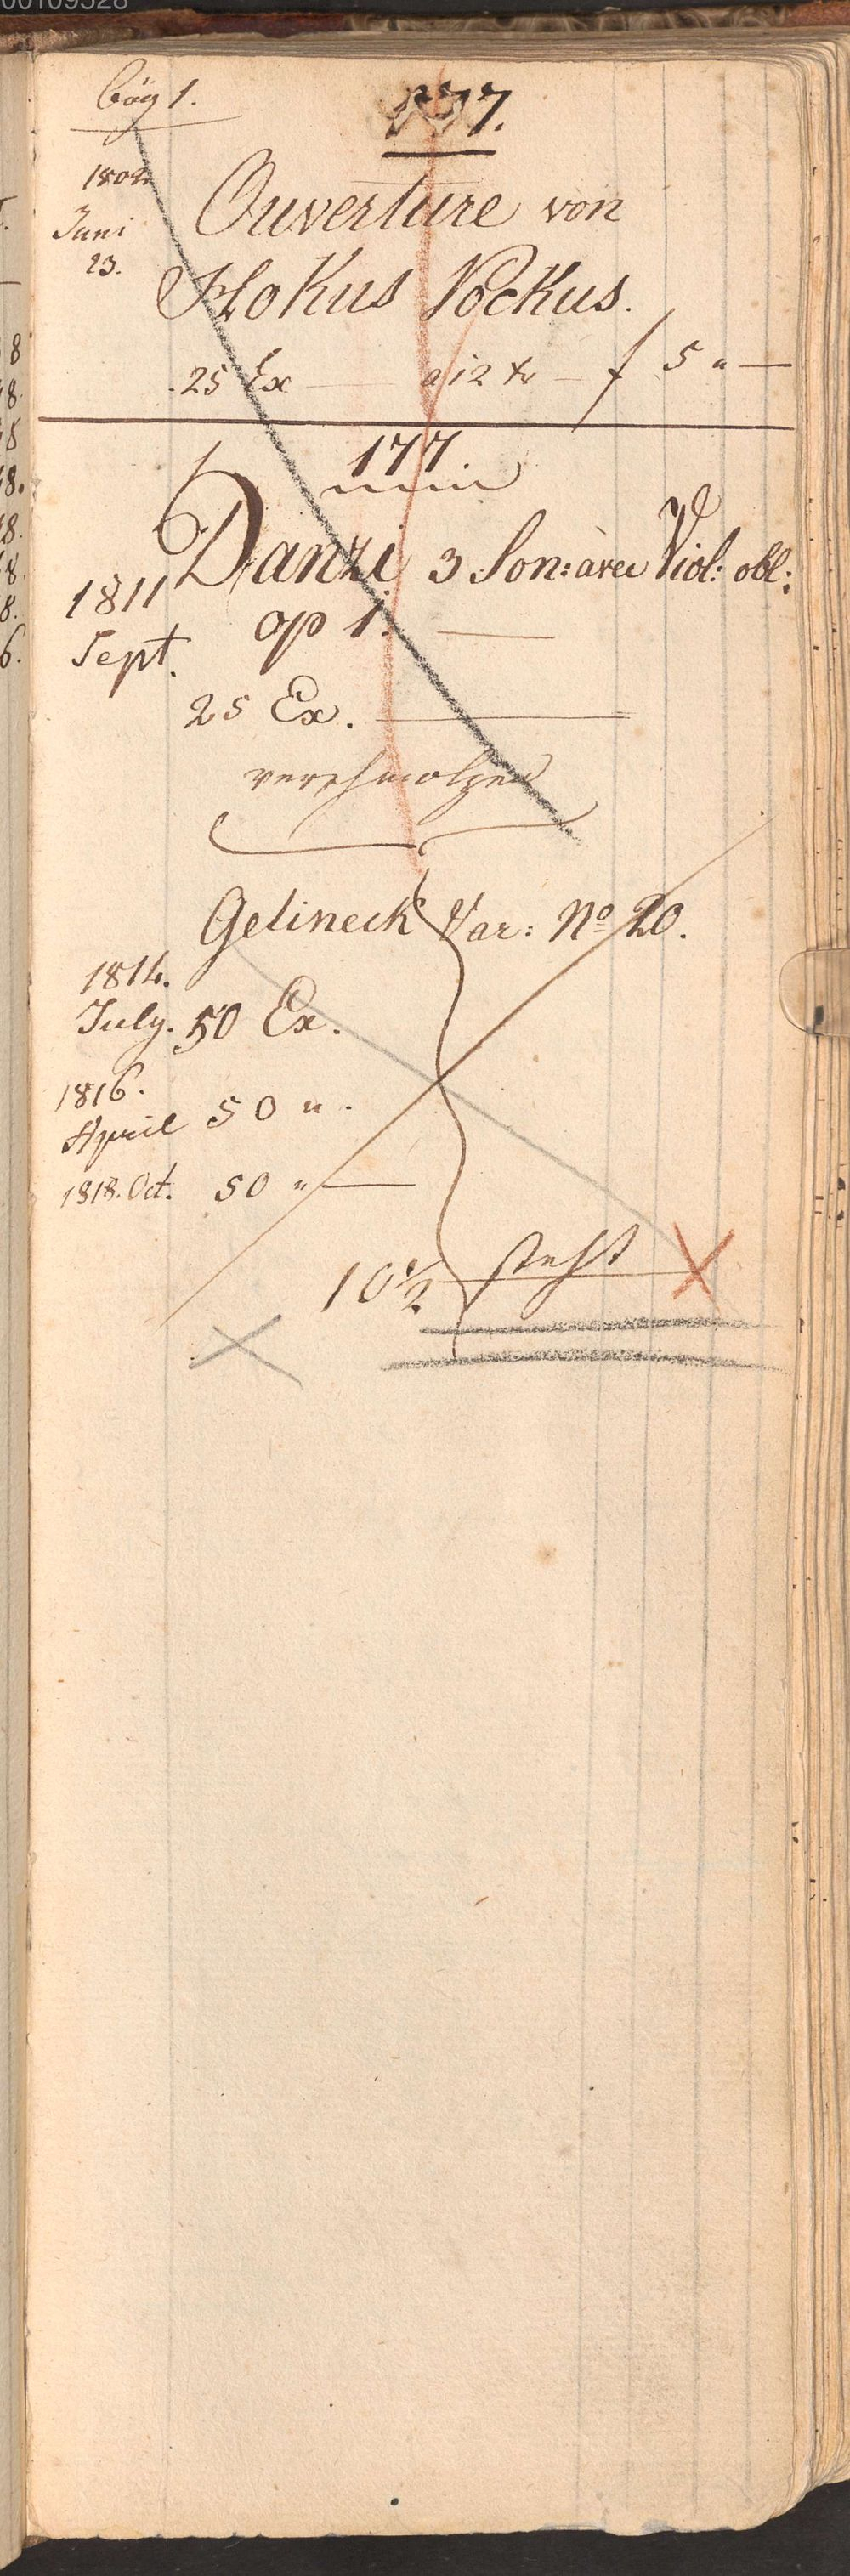 00109528
bög 1.
177.
1802
Juni
23.
Ouverture von
Hokus Pockus.
25 Ex — a 12 xr — f 5 " —
177.
1811
Sept.
Danzi 3 Son: avec Viol: obl:
op 1. —
25 Ex. —
verschmolzen
Gelineck Var: No 20.
1814.
July. 50 Ex.
1816.
April 50 " .
1818. Oct. 50 " —
10 1/2 steht